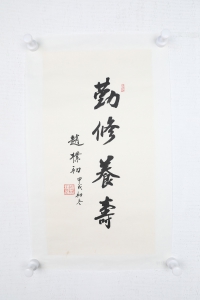 勤修養壽
趙樸初甲戌初冬